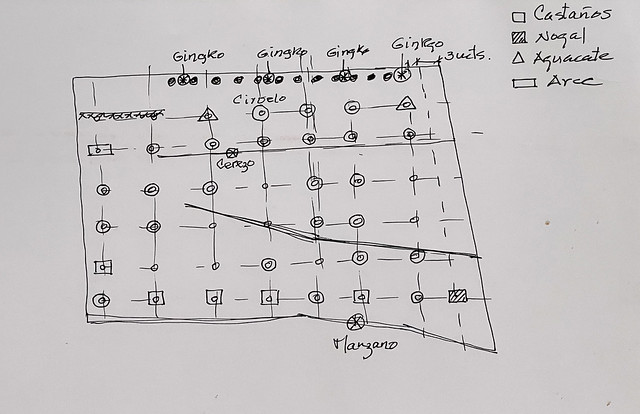 Castaños
Nogal
Aguacate
Arce
Gingko
Gingko
Gingko
Ginkgo
3 mts.
Ciruelo
Cerezo
Manzano